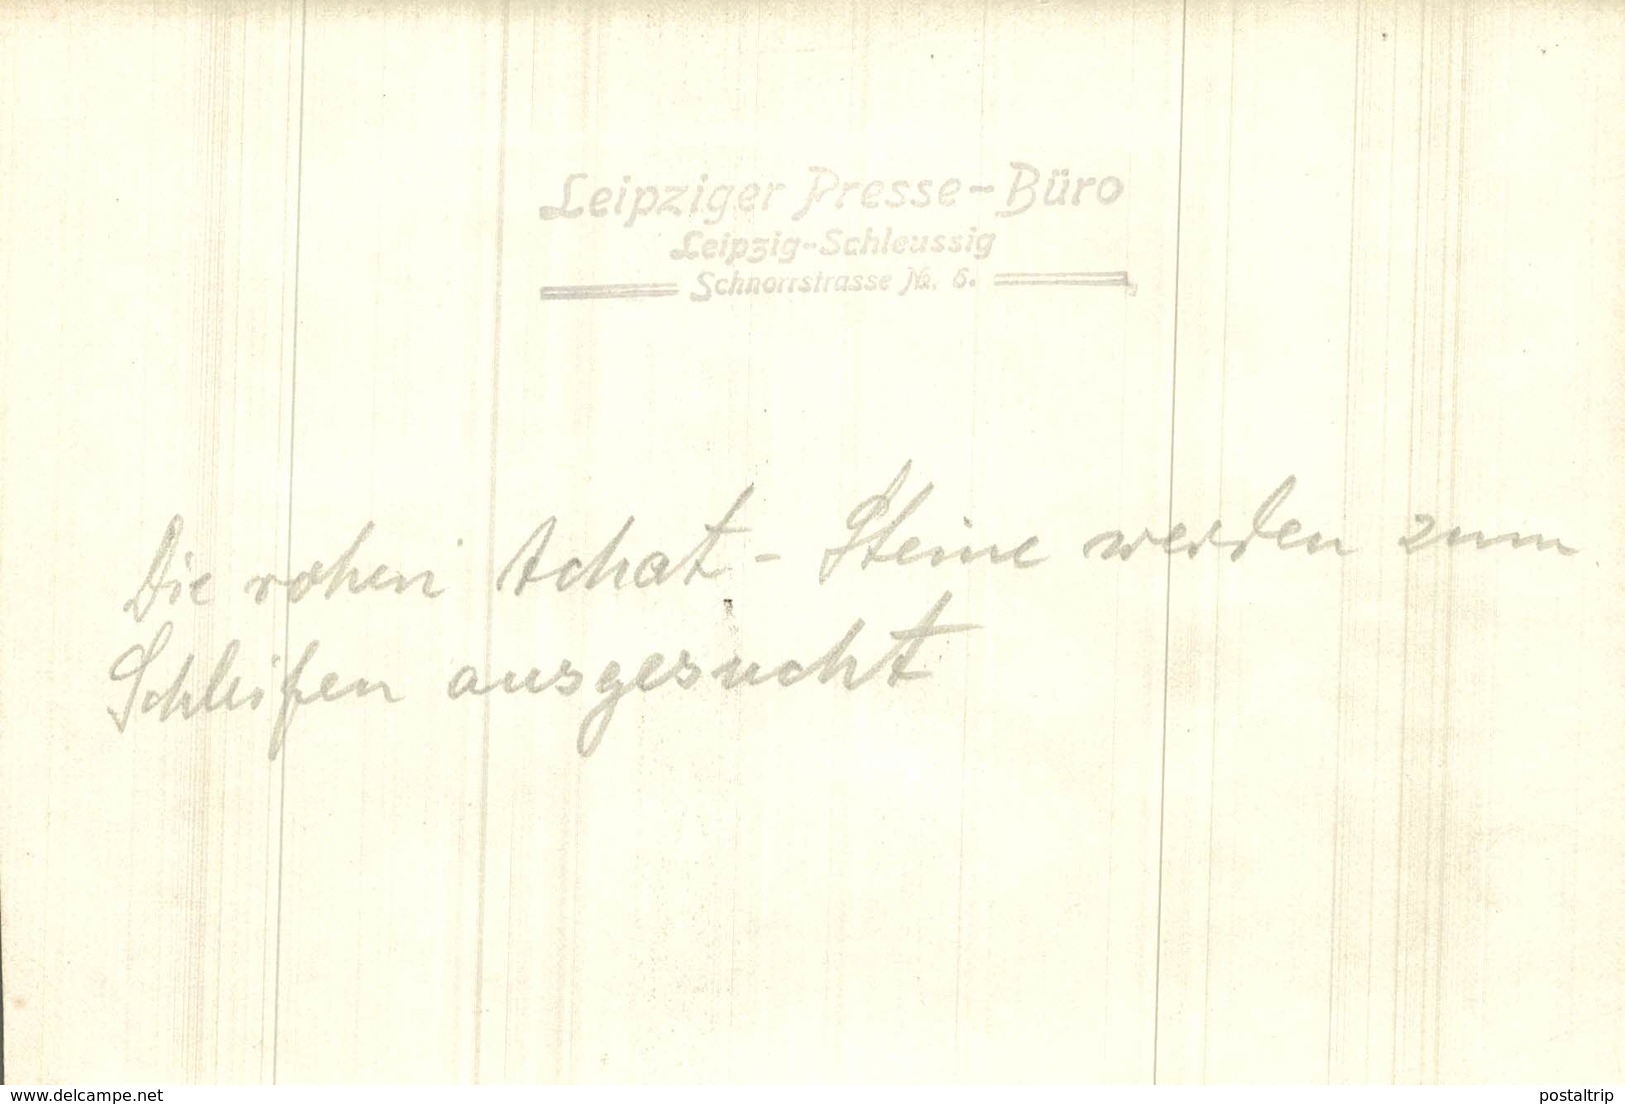 Leipziger Presse-Büro
Leipzig-Schleussig
Schnorrstrasse №. 6.
Die rohen Achat - Steine werden zum
Schleifen ausgesucht
www.delcampe.net
postaltrip